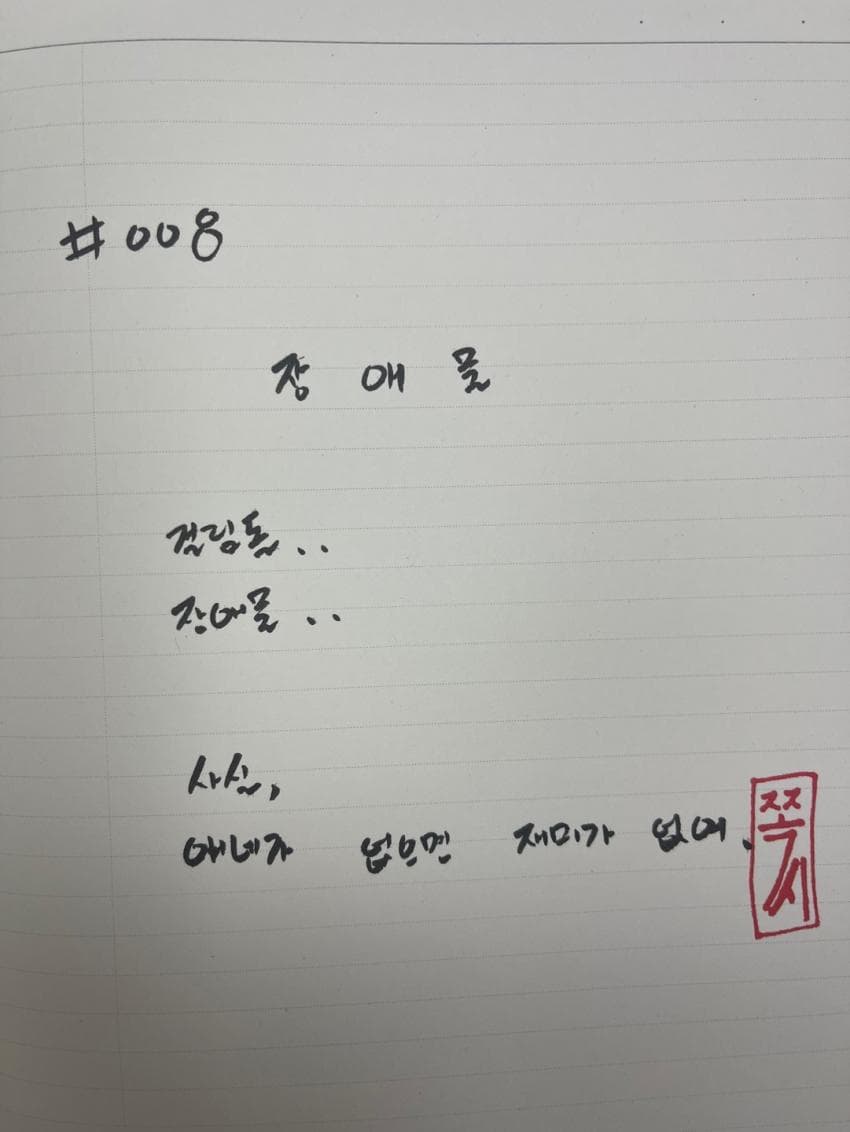 #008
장애물
걸림돌..
장애물..
사실,
얘네가 없으면 재미가 없어.
쪽시